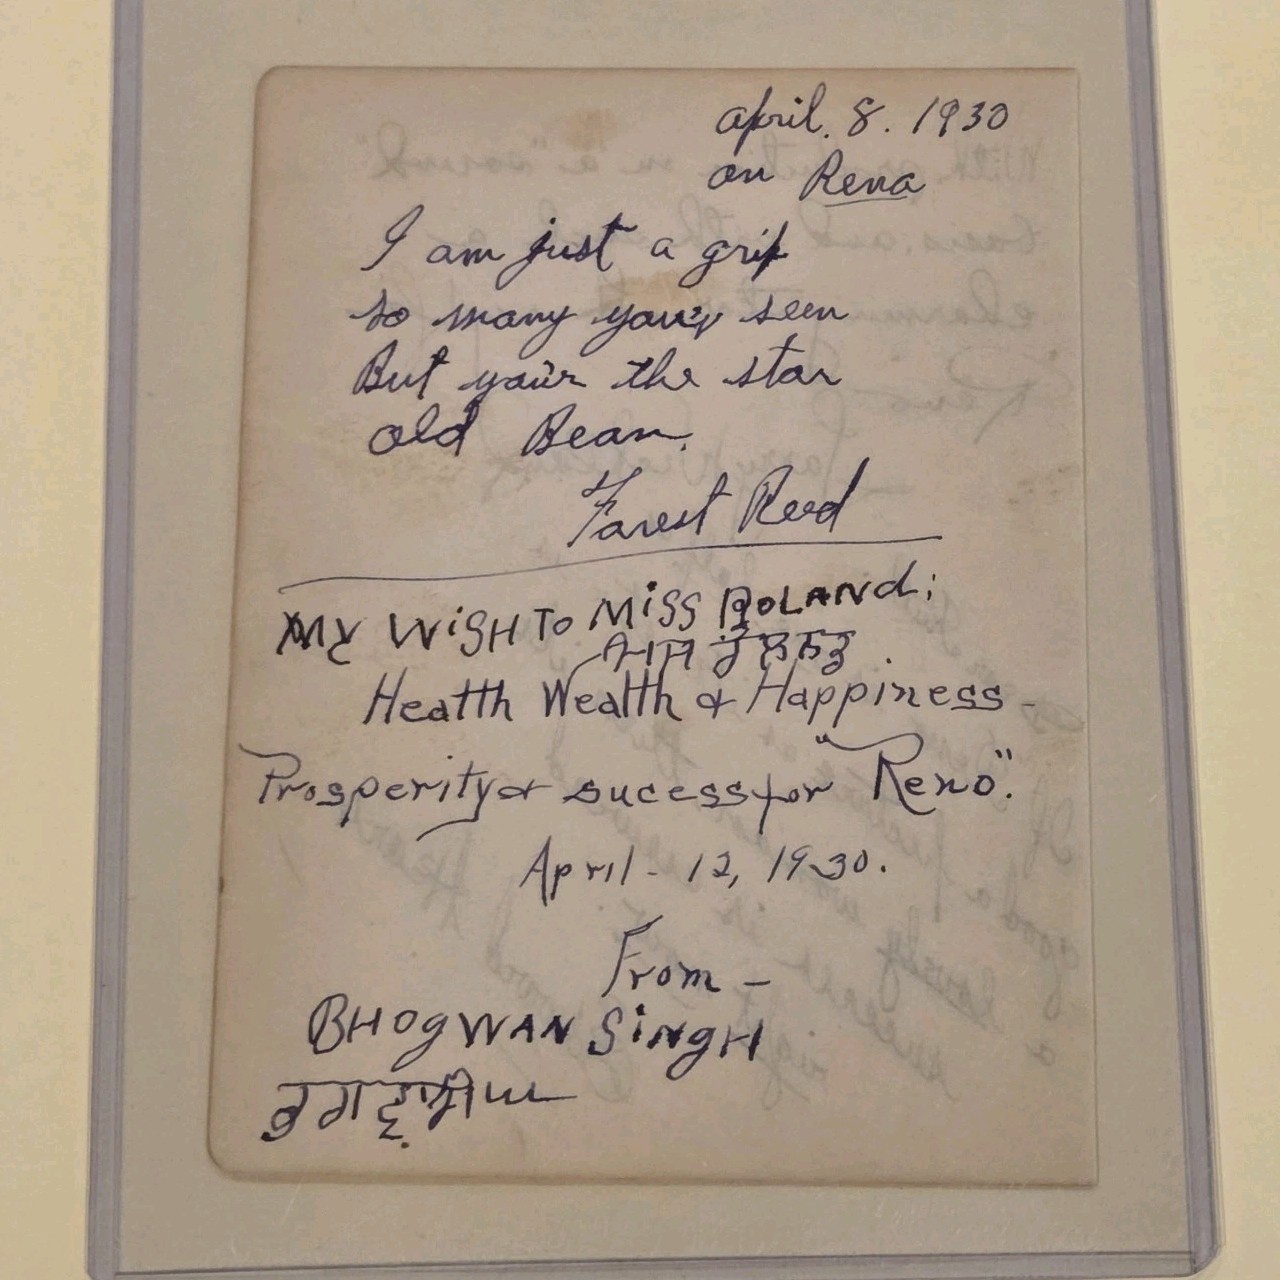 april. 8. 1930
on Rena
I am just a grip
so many you've seen
But you'r the star
old Bean.
Forest Reed
My WiSH TO MiSS ROLANd;
ਮਿਸ
Heatth Wealth & Happiness -
Prosperity & sucess for "Reno".
April - 12, 1930.
From -
BHOgWAN SiNgH